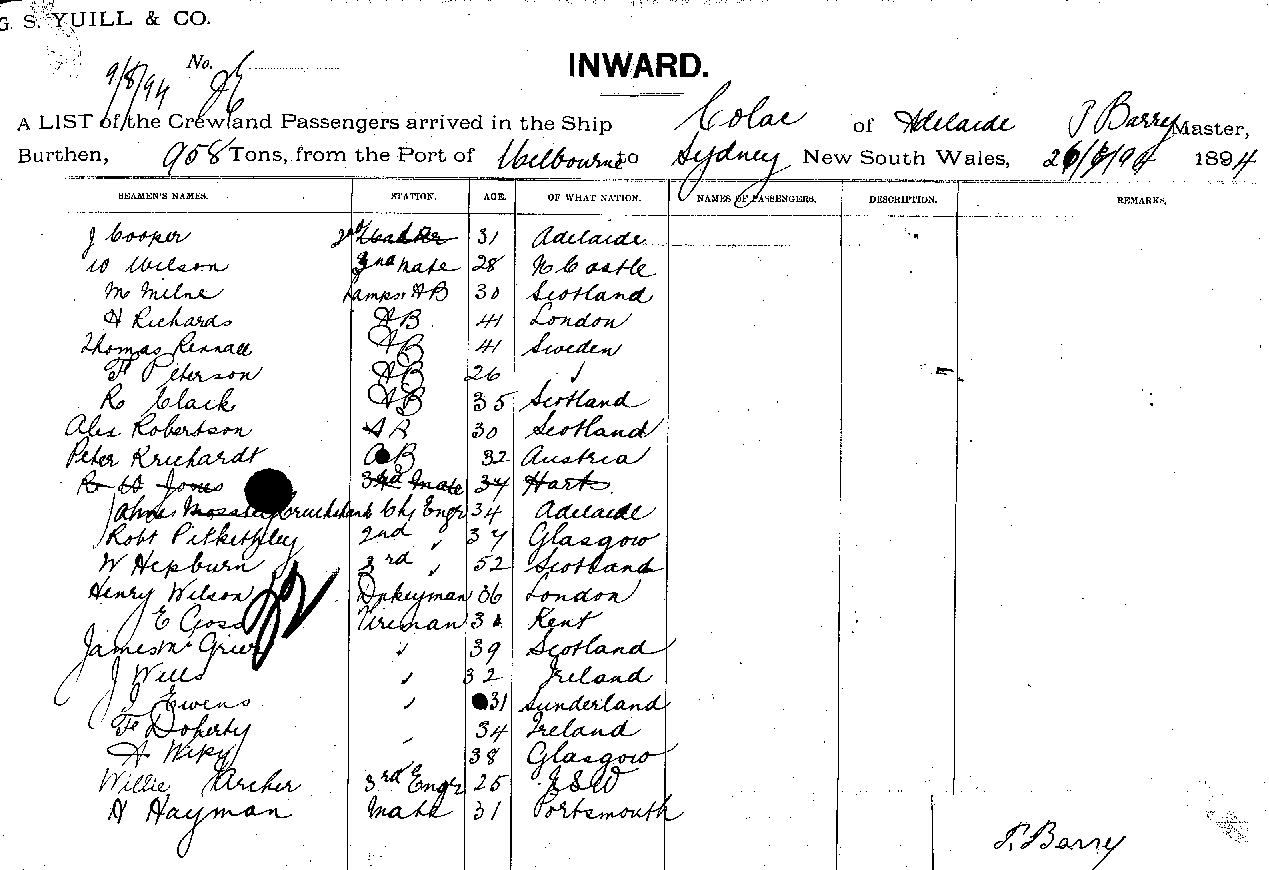 G. S. YUILL & CO.
INWARD.
9/8/94 No.
A LIST of the Crew and Passengers arrived in the Ship Colac of Adelaide P Barry Master,
Burthen, 958 Tons, from the Port of Melbourne to Sydney New South Wales, 1894
SEAMEN'S NAMES. STATION. AGE. OF WHAT NATION. NAMES OF PASSENGERS. DESCRIPTION. REMARKS.
J Cooper 31 Adelaide
W Wilson 2nd Mate 28 N Castle
M Milne Lamps & AB 30 Scotland
H Richards AB 41 London
Thomas Rennall AB 41 Sweden
F Peterson AB 26 "
R Clack AB 35 Scotland
Alex Robertson AB 30 Scotland
Peter Krichardt AB 32 Austria
R W Jones 3rd Mate 34 Harts
Cruickshank Chf Engr 34 Adelaide
Robt Pitkethley 2nd " 37 Glasgow
W Hepburn 3rd " 52 Scotland
Henry Wilson Dnkeyman 36 London
E Goss Fireman 3 Kent
James Mc Grier " 39 Scotland
J Wills " 32 Ireland
J Ewens " 31 Sunderland
F Doherty " 34 Ireland
A 38 Glasgow
Willie Archer 3rd Engr 25 NSW
H Hayman Mate 31 Portsmouth
P. Barry